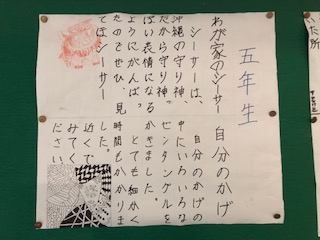 五年生
わが家のシーサー
シーサーは、
沖縄の守り神。
だから守り神っ
ぽい表情になる
ようにがんばっ
たのでぜひ、見
てねシーサー
自分のかげ
自分のかげの
中にいろいろな
ゼンタングルを
かきました。
とても細かく
時間もかかりま
した。
近くで
みてく
ださい
いた所